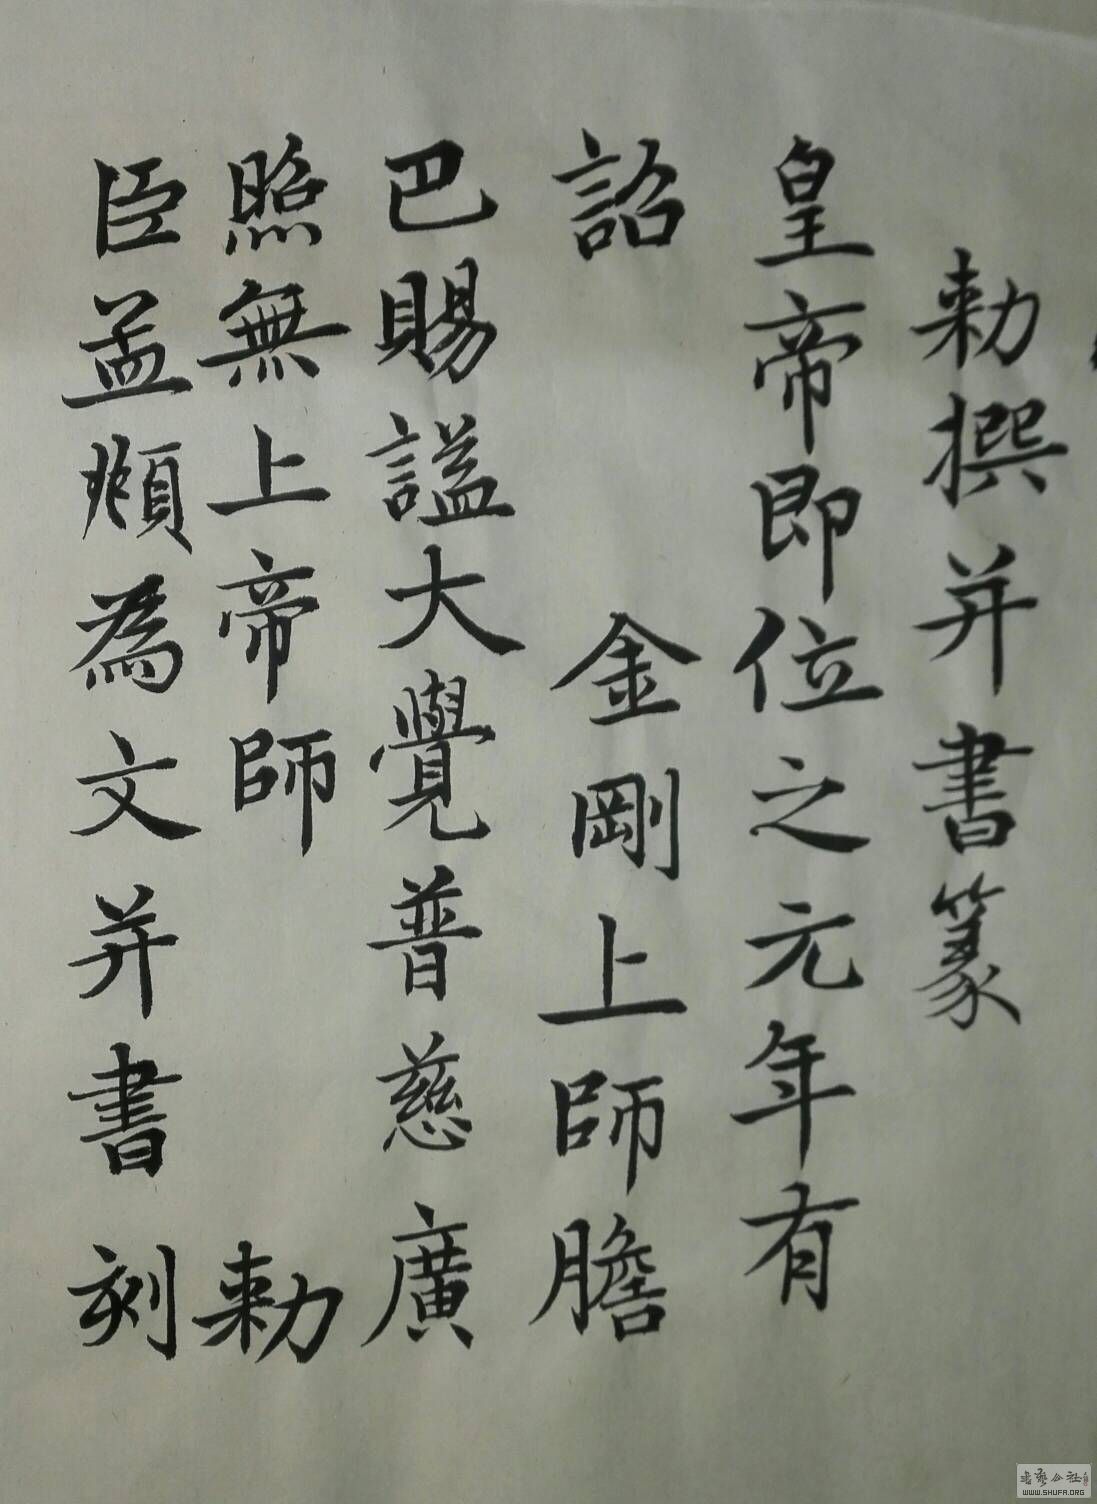 勅撰并書篆
皇帝即位之元年有
詔 金剛上師膽
巴賜謚大覺普慈廣
照無上帝師 勅
臣孟頫為文并書刻
書藝公社
WWW.SHUFA.ORG